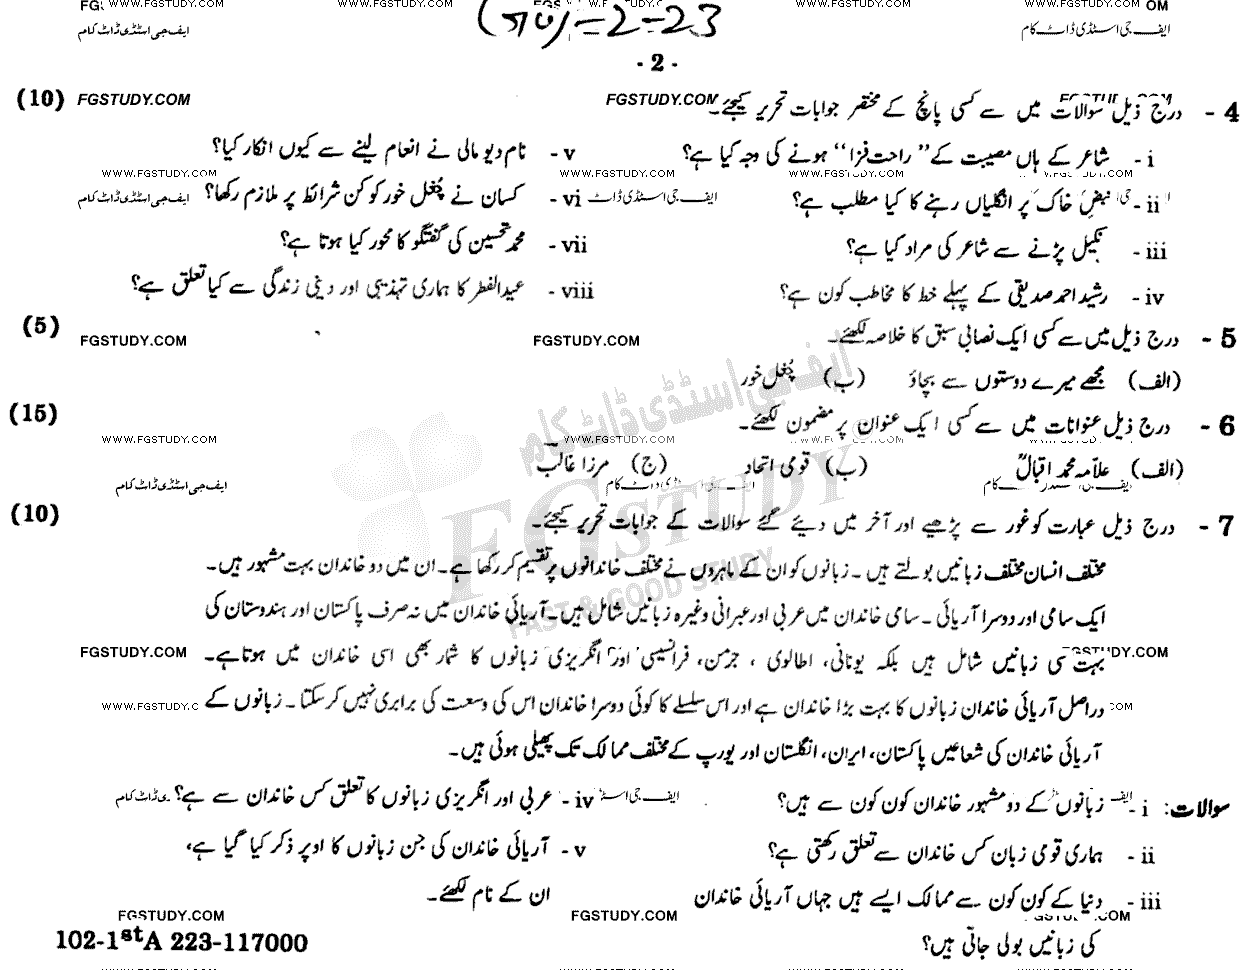 FGSTUDY.COM
WWW.FGSTUDY.COM
ایف جی اسٹڈی ڈاٹ کام
2-23
- 2 -
4 - درج ذیل سوالات میں سے کسی پانچ کے مختصر جوابات تحریر کیجئے۔ (10)
i - شاعر کے ہاں مصیبت کے ‘‘راحت فزا’’ ہونے کی وجہ کیا ہے؟
v - نام دیو مالی نے انعام لینے سے کیوں انکار کیا؟
ii - نبضِ خاک پر انگلیاں رہنے کا کیا مطلب ہے؟
vi - کسان نے چُغل خور کو کن شرائط پر ملازم رکھا؟
iii - نکیل پڑنے سے شاعر کی مراد کیا ہے؟
vii - محمد تحسین کی گفتگو کا محور کیا ہوتا ہے؟
iv - رشید احمد صدیقی کے پہلے خط کا مخاطب کون ہے؟
viii - عیدالفطر کا ہماری تہذیبی اور دینی زندگی سے کیا تعلق ہے؟
5 - درج ذیل میں سے کسی ایک نصابی سبق کا خلاصہ لکھئے۔ (5)
(الف) مجھے میرے دوستوں سے بچاؤ (ب) چُغل خور
6 - درج ذیل عنوانات میں سے کسی ایک عنوان پر مضمون لکھئے۔ (15)
(الف) علاّمہ محمد اقبالؒ (ب) قومی اتحاد (ج) مرزا غالب
7 - درج ذیل عبارت کو غور سے پڑھیے اور آخر میں دیئے گئے سوالات کے جوابات تحریر کیجئے۔ (10)
مختلف انسان مختلف زبانیں بولتے ہیں۔ زبانوں کو ان کے ماہروں نے مختلف خاندانوں پر تقسیم کر رکھا ہے۔ ان میں دو خاندان بہت مشہور ہیں۔
ایک سامی اور دوسرا آریائی۔ سامی خاندان میں عربی اور عبرانی وغیرہ زبانیں شامل ہیں۔ آریائی خاندان میں نہ صرف پاکستان اور ہندوستان کی
بہت سی زبانیں شامل ہیں بلکہ یونانی، اطالوی، جرمن، فرانسیسی اور انگریزی زبانوں کا شمار بھی اسی خاندان میں ہوتا ہے۔
دراصل آریائی خاندان زبانوں کا بہت بڑا خاندان ہے اور اس سلسلے کا کوئی دوسرا خاندان اس کی وسعت کی برابری نہیں کر سکتا۔ زبانوں کے
آریائی خاندان کی شعاعیں پاکستان، ایران، انگلستان اور یورپ کے مختلف ممالک تک پھیلی ہوئی ہیں۔
سوالات: i - زبانوں کے دو مشہور خاندان کون کون سے ہیں؟
iv - عربی اور انگریزی زبانوں کا تعلق کس خاندان سے ہے؟
ii - ہماری قومی زبان کس خاندان سے تعلق رکھتی ہے؟
v - آریائی خاندان کی جن زبانوں کا اوپر ذکر کیا گیا ہے،
ان کے نام لکھئے۔
iii - دنیا کے کون کون سے ممالک ایسے ہیں جہاں آریائی خاندان
کی زبانیں بولی جاتی ہیں؟
102-1stA 223-117000
ایف جی اسٹڈی ڈاٹ کام
FG STUDY
FAST & GOOD STUDY